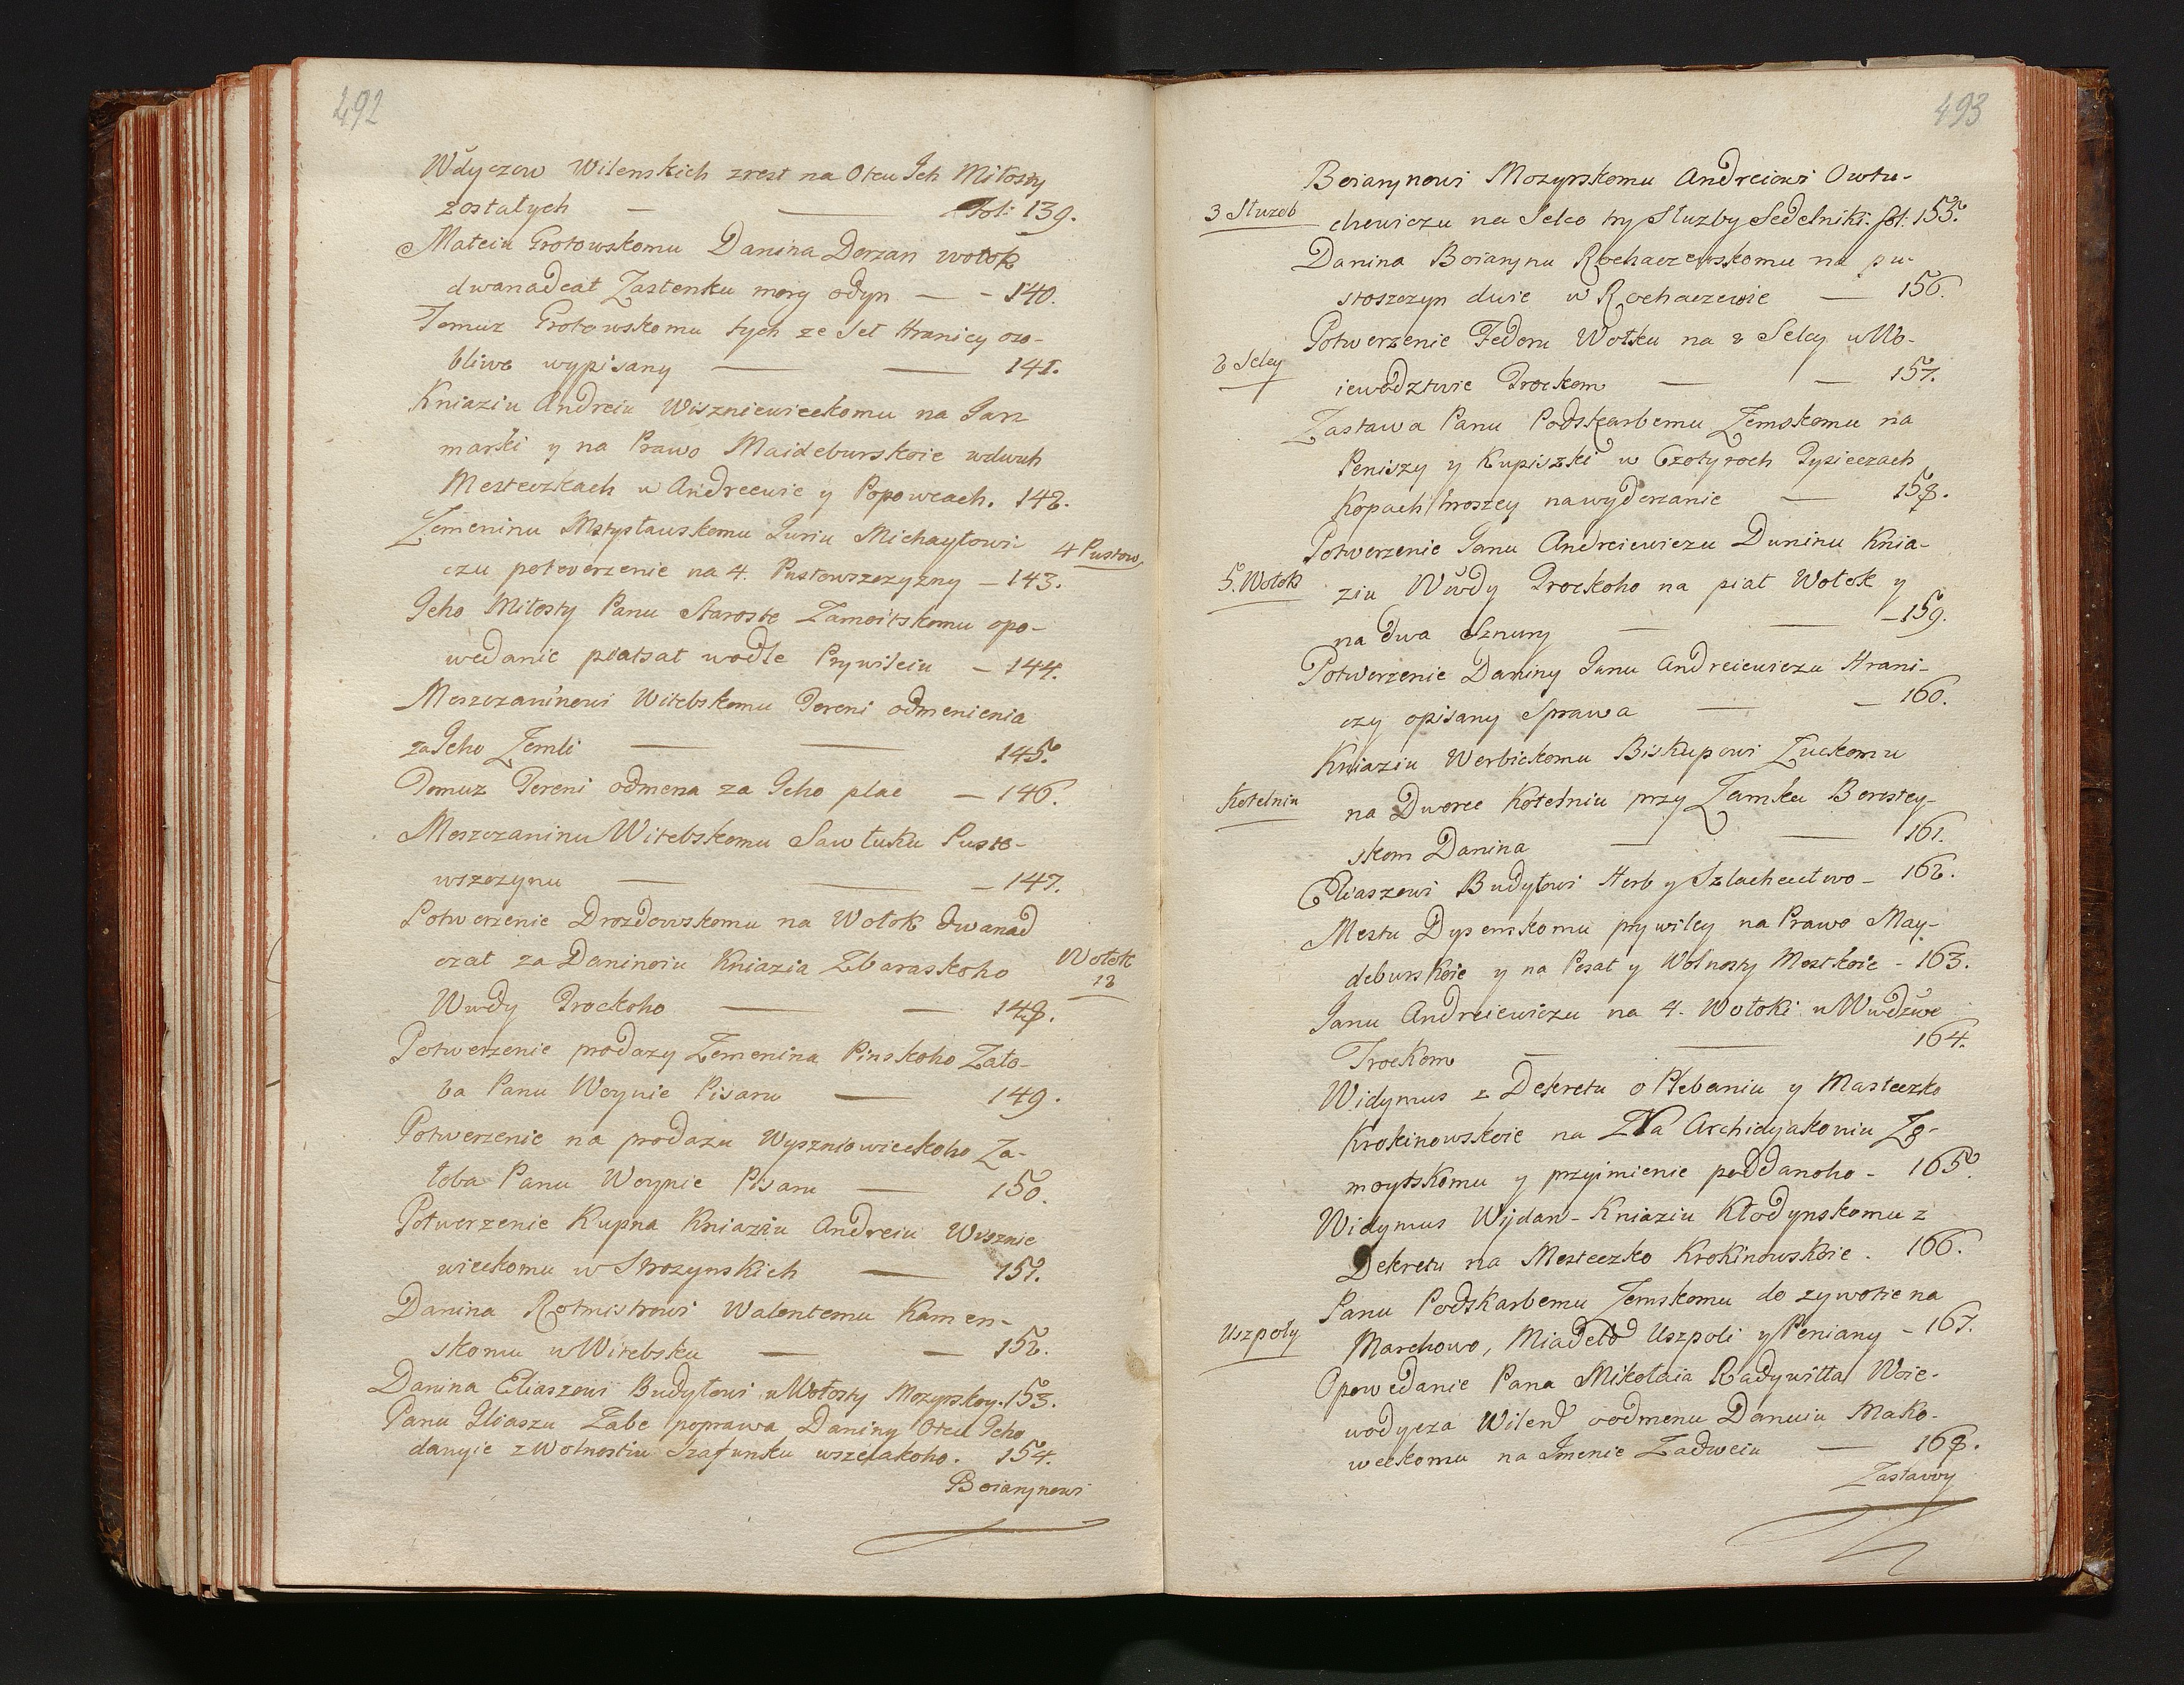 492
Wdyczow Wilenskich zrest na Otcu Jch Miłosty
zostałych — — fol: 139.
Mateiu Grotowskomu Danina Derzan wołok
dwanadcat Zastenku morg odyn — - 140.
Tomuz Grotowskomu tych ze Seł Hranicy oso-
bliwe wypisany — — 141.
Kniaziu Andreiu Wiszniewieckomu na Jar
marki y na Prawo Maideburskoie wdwuh
Mesteczkach u Andreewie y Popowcach. 142.
Zemeninu Mstysławskomu Juriu Michayłowi-
czu potwerzenie na 4. Pustowszczyzny - 143.
4 Pustow
Jeho Miłosty Panu Staroste Zamoitskomu opo-
wedanie piatsat wodle Prywileiu - 144.
Meszczaninowi Witebskomu Tereni odmenienia
za Jeho Zemli — — 145.
Tomuz Tereni odmena za Jeho plac - 146.
Meszczaninu Witebskomu Sawłuku Pusto-
wszczynu — — - 147.
Potwerzenie Drozdowskomu na Wołok dwanad
czat za Daninoiu Kniazia Zbaraskoho
Wołok
12
Wwdy Trockoho — — 148.
Potwerzenie prodazy Zemenina Pinskoho Zało-
ba Panu Woynie Pisaru — 149.
Potwerzenie na prodazu Wyszniowieckoho Za-
łoba Panu Woynie Pisaru — 150.
Potwerzenie Kupna Kniaziu Andreiu Wisznie
wieckomu w Strozynskich — 151.
Danina Rotmistrowi Walentemu Kamen-
skomu u Witebsku — — 152.
Danina Eliaszowi Budyłowi u Wołosty Mozyrskoy. 153.
Panu Iliaszu Zabe poprawa Daniny Otcu Jeho
danyie z Wolnostiu Szafunku wszelakoho. 154.
Boiarynowi
493
Boiarynowi Mozyrskomu Andreiowi Owtu-
3 Słuzeb
chowiczu na Selco try Słuzby Sedelniki. fol: 155.
Danina Boiarynu Rochaczewskomu na pu-
stoszczyn dwie w Rochaczewie — 156.
Potwerzenie Fedoru Wołku na 2 Selcy u Wo-
2 Selcy
iewodztwie Trockom — — 157.
Zastawa Panu Podskarbemu Zemskomu na
Peniszy y Kupiszki w Czotyroch Tysieczach
Kopach hroszey na wyderzanie — 158.
Potwerzenie Janu Andreiewiczu Duninu Knia-
5. Wołok
ziu Wwdy Trockoho na piat Wołok y
na dwa Sznury — — - 159.
Potwerzenie Daniny Janu Andreiewiczu Hrani-
czy opisany Sprawa — - 160.
Kniaziu Werbickomu Biskupowi Łuckomu
Kotelniu
na Dworec Kotelniu przy Zamku Berestey-
skom Danina — — 161.
Eliaszowi Budyłowi Herb y Szlachectwo - 162.
Mestu Dysenskomu prywiley na Prawo May-
deburskoie y na Pesat y Wolnosty Mestskoie - 163.
Janu Andreiewiczu na 4. Wołoki u Wwdzwe
Trockom — — 164.
Widymus z Dekretu o Plebaniu y Masteczko
Krokinowskoie na Archidyakoniu Zo-
moytskomu y przyimienie poddanoho - 165.
Widymus Wydan - Kniaziu Kłodynskomu z
Dekretu na Mesteczko Krokinowskoie. 166.
Panu Podskarbemu Zemskomu do zywotie na
Uszpoły
Marchowo, Miadeło Uszpoli y Peniany - 167.
Opowedanie Pana Mikołaia Radywiłła Woie-
wodycza Wilend oodmenu Danuiu Mako-
weckomu na Jmenie Zadweiu — 168.
Zastawy